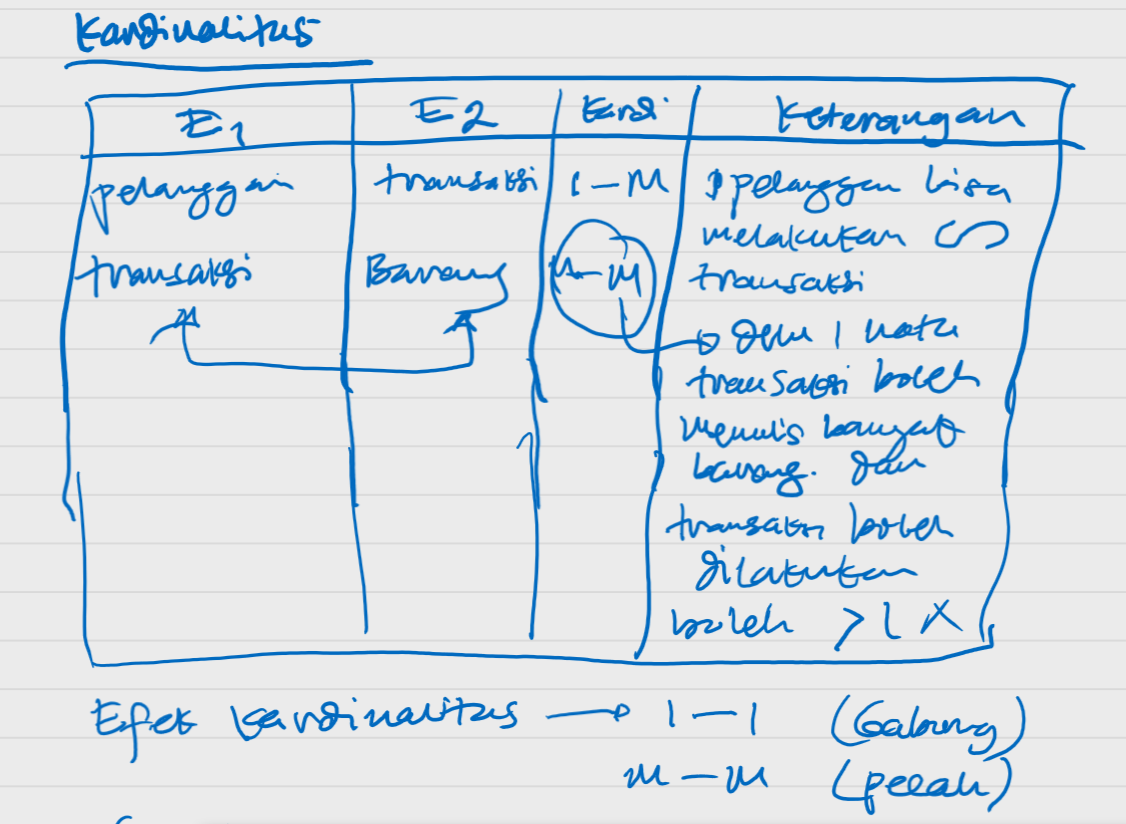 Kardinalitas
E1 E2 Kardi Keterangan
pelanggan transaksi 1-M 1 pelanggan bisa
melakukan ∽
transaksi Barang M-M transaksi
1 nota
transaksi boleh
menulis banyak
barang. dan
transaksi boleh
dilakukan
boleh > 1 X
Efek kardinalitas → 1-1 (Gabung)
M-M (pecah)